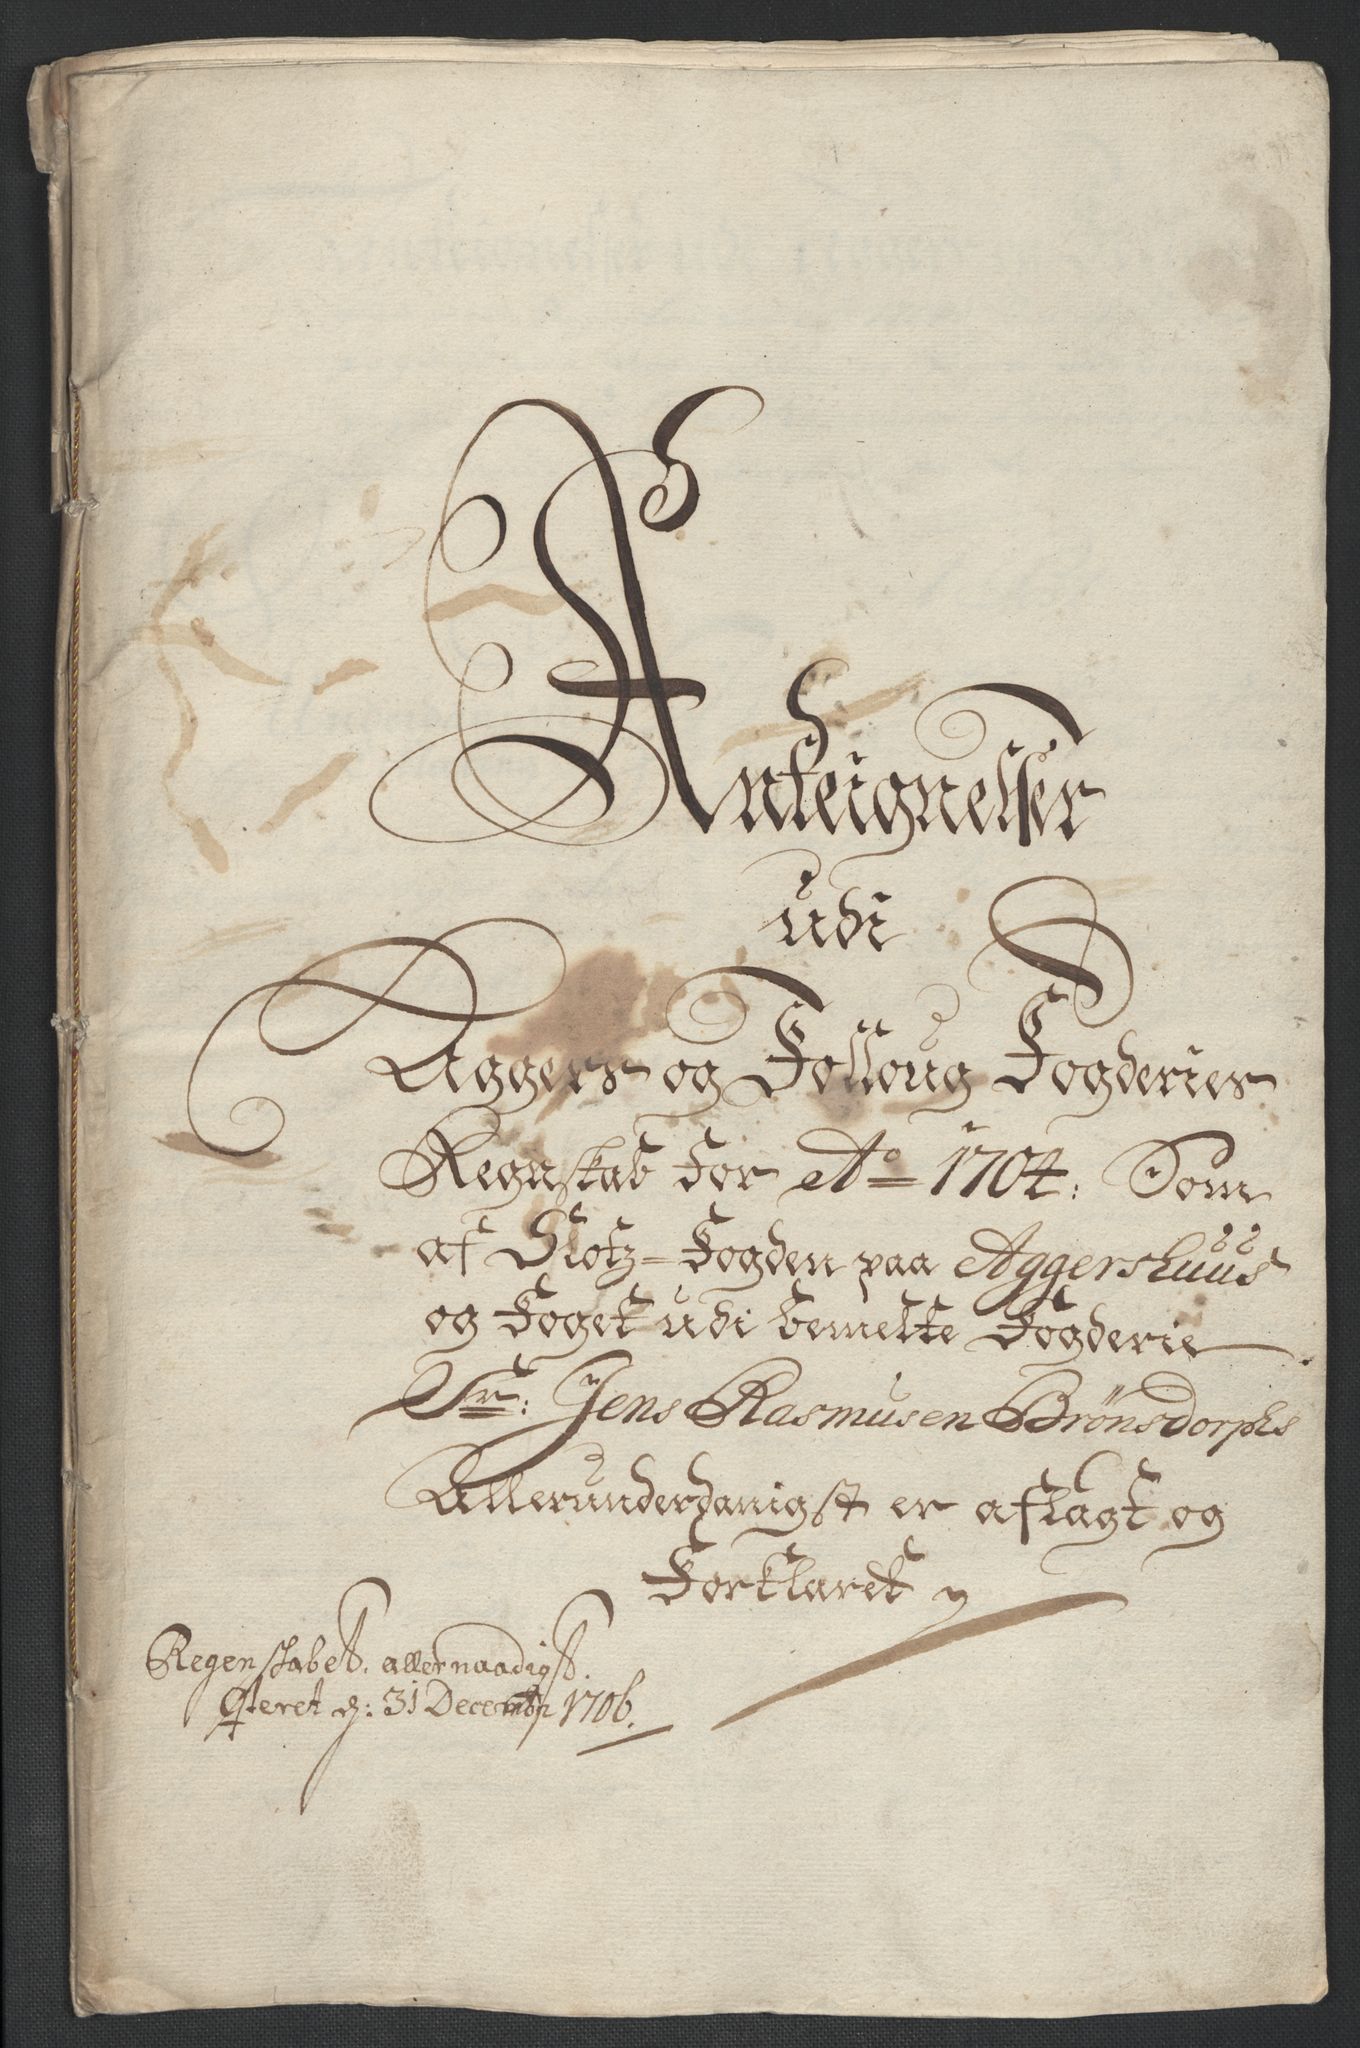 Anteignelser
udi
Aggers og Folloug Fogderier
Regnskab for Ao 1704: Som
af Slotz-Fogden paa Aggershuus
og Foget udi bemelte Fogderie
Sr: Jens Rasmusen Brönsdorphs
Allerunderdanigst er aflagt og
Forklaret
Regenskabet allernaadigst
Qteret d: 31 Decembr 1706.